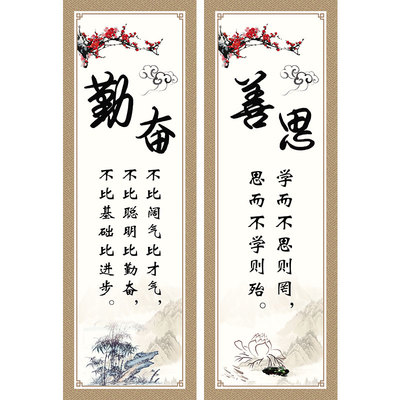 勤奋
不比阔气比才气，
不比聪明比勤奋，
不比基础比进步。
善思
学而不思则罔，
思而不学则殆。